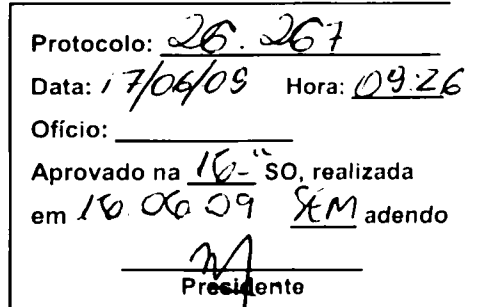 Protocolo: 26.267
Data: 17/06/09 Hora: 09:26
Ofício:
Aprovado na 16ª SO, realizada
em 16.06.09 SEM adendo
Presidente